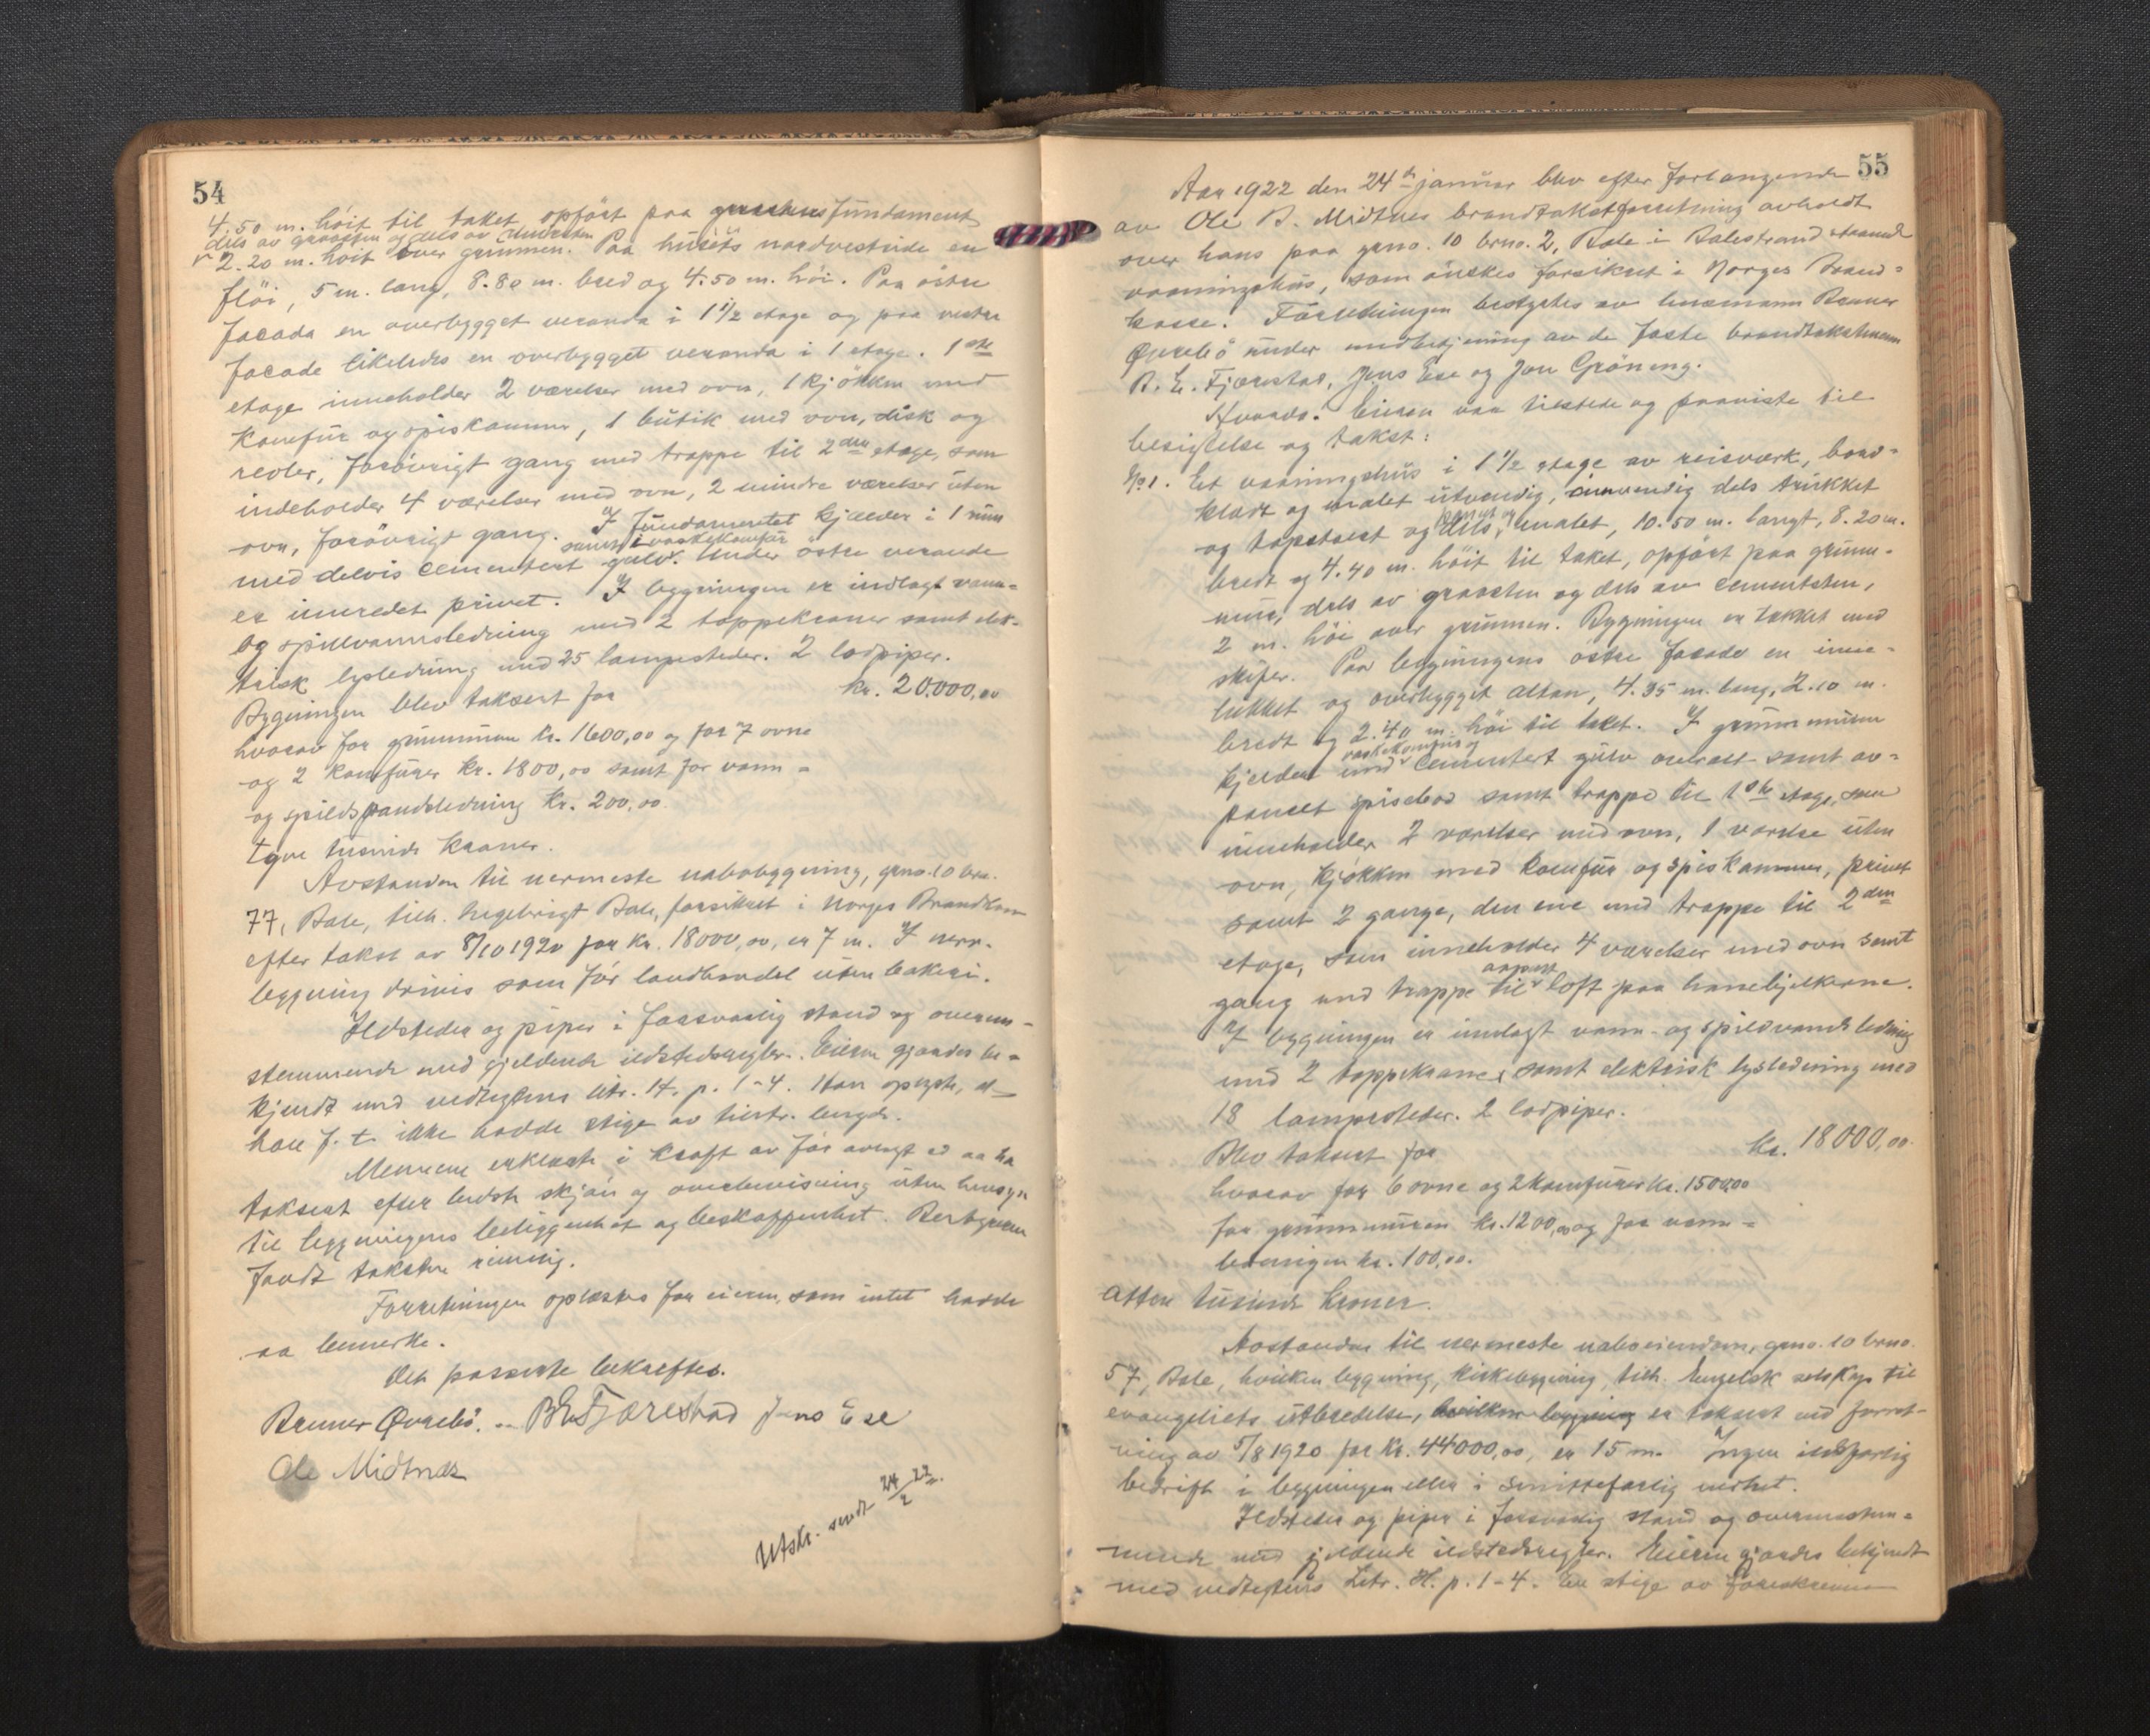 54
4.50 m. höit til taket opfört paa grundmursfundament
dels av graasten og dels av cementsten
2.20 m. höit over grunnen. Paa husets nordvestside en
flöi, 5 m. lang, 8.80 m. bred og 4.50 m. höi. Paa östre
facade en overbygget veranda i 1 1/2 etage og paa vestre
facade likeledes en overbygget veranda i 1 etage. 1ste
etage inneholder 2 værelser med ovn, 1 kjökken med
komfür og spiskammer, 1 butik med ovn, disk og
reoler, forövrigt gang med trappe til 2den etage, som
indeholder 4 værelser med ovn, 2 mindre værelser uten
ovn, forövrigt gang. I fundamentet kjælder i 1 rum
samt i vaskekomfür
med delvis cementert gulv. Under östre veranda
er innredet privet. I bygningen er indlagt vann-
og spillvannsledning med 2 tappekraner samt elek-
trisk lysledning med 25 lampesteder. 2 lodpiper.
Bygningen blev taksert for kr. 20.000,00
hvorav for grunmuren kr. 1600,00 og for 7 ovne
og 2 komfürer kr. 1800,00 samt for vann-
og spildvandsledning kr. 200,00.
Tyve tusinde kroner.
Avstanden til nærmeste nabobygning, grno. 10 brn.
77, Bale, tilh. Ingebrigt Bale, forsikret i Norges Brandkasse
efter takst av 8/10 1920 for kr. 18000,00, er 7 m. I nevn.
bygning drives som för landhandel uten bakeri.
Ildsteder og piper i forsvarlig stand og overens-
stemmende med gjeldende ildstedsregler. Eieren gjordes be-
kjendt med vedtegtens litr. H. p. 1-4. Han oplyste, at
han f. t. ikke hadde stige av tilstr. lengde.
Mennene erklærte i kraft av för avlagt ed aa ha
taksert efter bedste skjön og overbevisning uten hensyn
til bygningens beliggenhet og beskaffenhet. Bestyreren
fandt taksten rimelig.
Forretningen oplæstes for eieren, som intet hadde
aa bemerke.
Det passerte bekreftes.
Bruner Øvrebö. B E Fjærestad Jens Ese
Ole Midtnæs
Utskr. sendt 24/2 22.
55
Aar 1922 den 24de januar blev efter forlangende
av Ole B. Midtnes brandtakstforretning avholdt
over hans paa grno. 10 brno. 2, Bale i Balestrand staaende
vaaningshus, som önskes forsikret i Norges Brand-
kasse. Forretningen bestyrtes av lensmann Brunner
Øvrebö under medbetjening av de faste brandtakstmenn
B. E. Fjærestad, Jens Ese og Jon Gröneng.
Hvorda. Eieren var tilstede og paaviste til
besigtelse og takst:
No 1. Et vaaningshus i 1 1/2 etage av reisværk, bord-
klædt og malet utvendig, innvendig dels trukket
panelt og
og tapetsert og dels malet, 10.50 m. langt, 8.20 m.
bredt og 4.40 m. höit til taket, opfört paa grunn-
mur, dels av graasten og dels av cementsten,
2 m. höi over grunnen. Bygningen er tækket med
skifer. Paa bygningens östre facade en inne-
lukket og overbygget altan, 4.35 m. lang, 2.10 m.
bredt og 2.40 m. höi til taket. I grunnmuren
vaskekomfür og
kjelder med cementert gulv overalt samt av-
panelt spisebod samt trappe til 1ste etage, som
inneholder 2 værelser med ovn, 1 værelse uten
ovn, kjökken med komfür og spiskammer, privet
samt 2 gange, den ene med trappe til 2den
etage, som inneholder 4 værelser med ovn samt
gang med trappe til loft paa hanebjelkerne.
I bygningen er innlagt vann- og spildvandsledning
med 2 tappekraner samt elektrisk lysledning med
18 lampesteder. 2 lodpiper.
Blev taksert for kr. 18000,00.
hvorav for 6 ovne og 2 komfürer kr. 1500,00
for grunnmuren kr. 1200,00 og for vann-
ledningen kr. 100,00.
Atten tusinde kroner.
Avstanden til nærmeste naboeiendom, grno. 10 brno.
57, Bale, hvilken bygning, kirkebygning, tilh. Engelsk selskap til
evangeliets utbredelse, hvilken bygning er taksert ved forret-
ning av 5/8 1920 for kr. 44000,00, er 15 m. Ingen ildsfarlig
bedrift i bygningen eller i smittefarlig nærhet.
Ildsteder og piper i forsvarlig stand og overensstem-
mende med gjeldende ildstedsregler. Eieren gjordes bekjendt
med vedtegtens Litr. H. p. 1-4. En stige av foreskreven